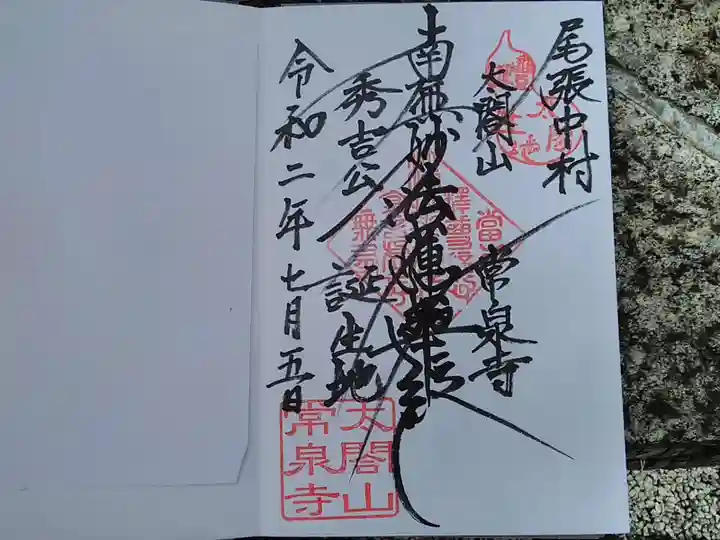 尾張中村
太閤山 常泉寺
南無妙法蓮華経
秀吉公 誕生地
令和二年七月五日
太閤山
常泉寺